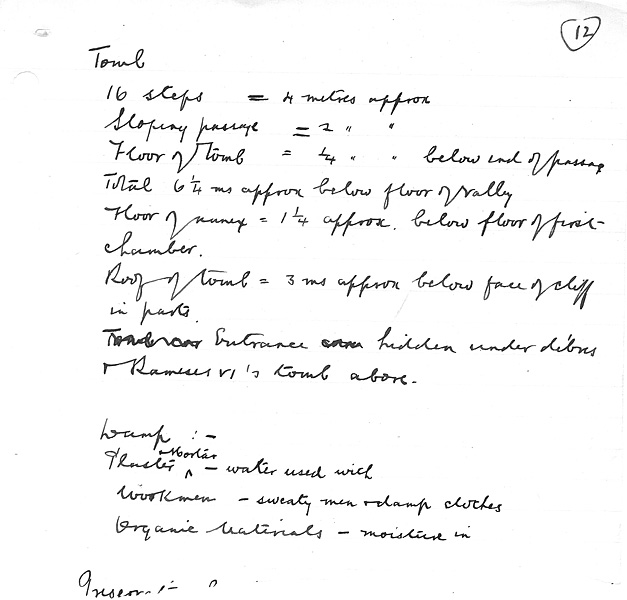 12
Tomb
16 steps = 4 metres approx
Sloping passage = 2 " "
Floor of tomb = ¼ " " below end of passage
Total 6¼ ms approx below floor of valley
Floor of annex = 1¼ approx. below floor of first
chamber.
Roof of tomb = 3 ms approx below face of cliff
in parts.
Entrance hidden under débris
Rameses VI's tomb above.
Damp :-
Plaster ^ Mortar – water used with
Workmen – sweaty men + damp clothes
Organic Materials – moisture in